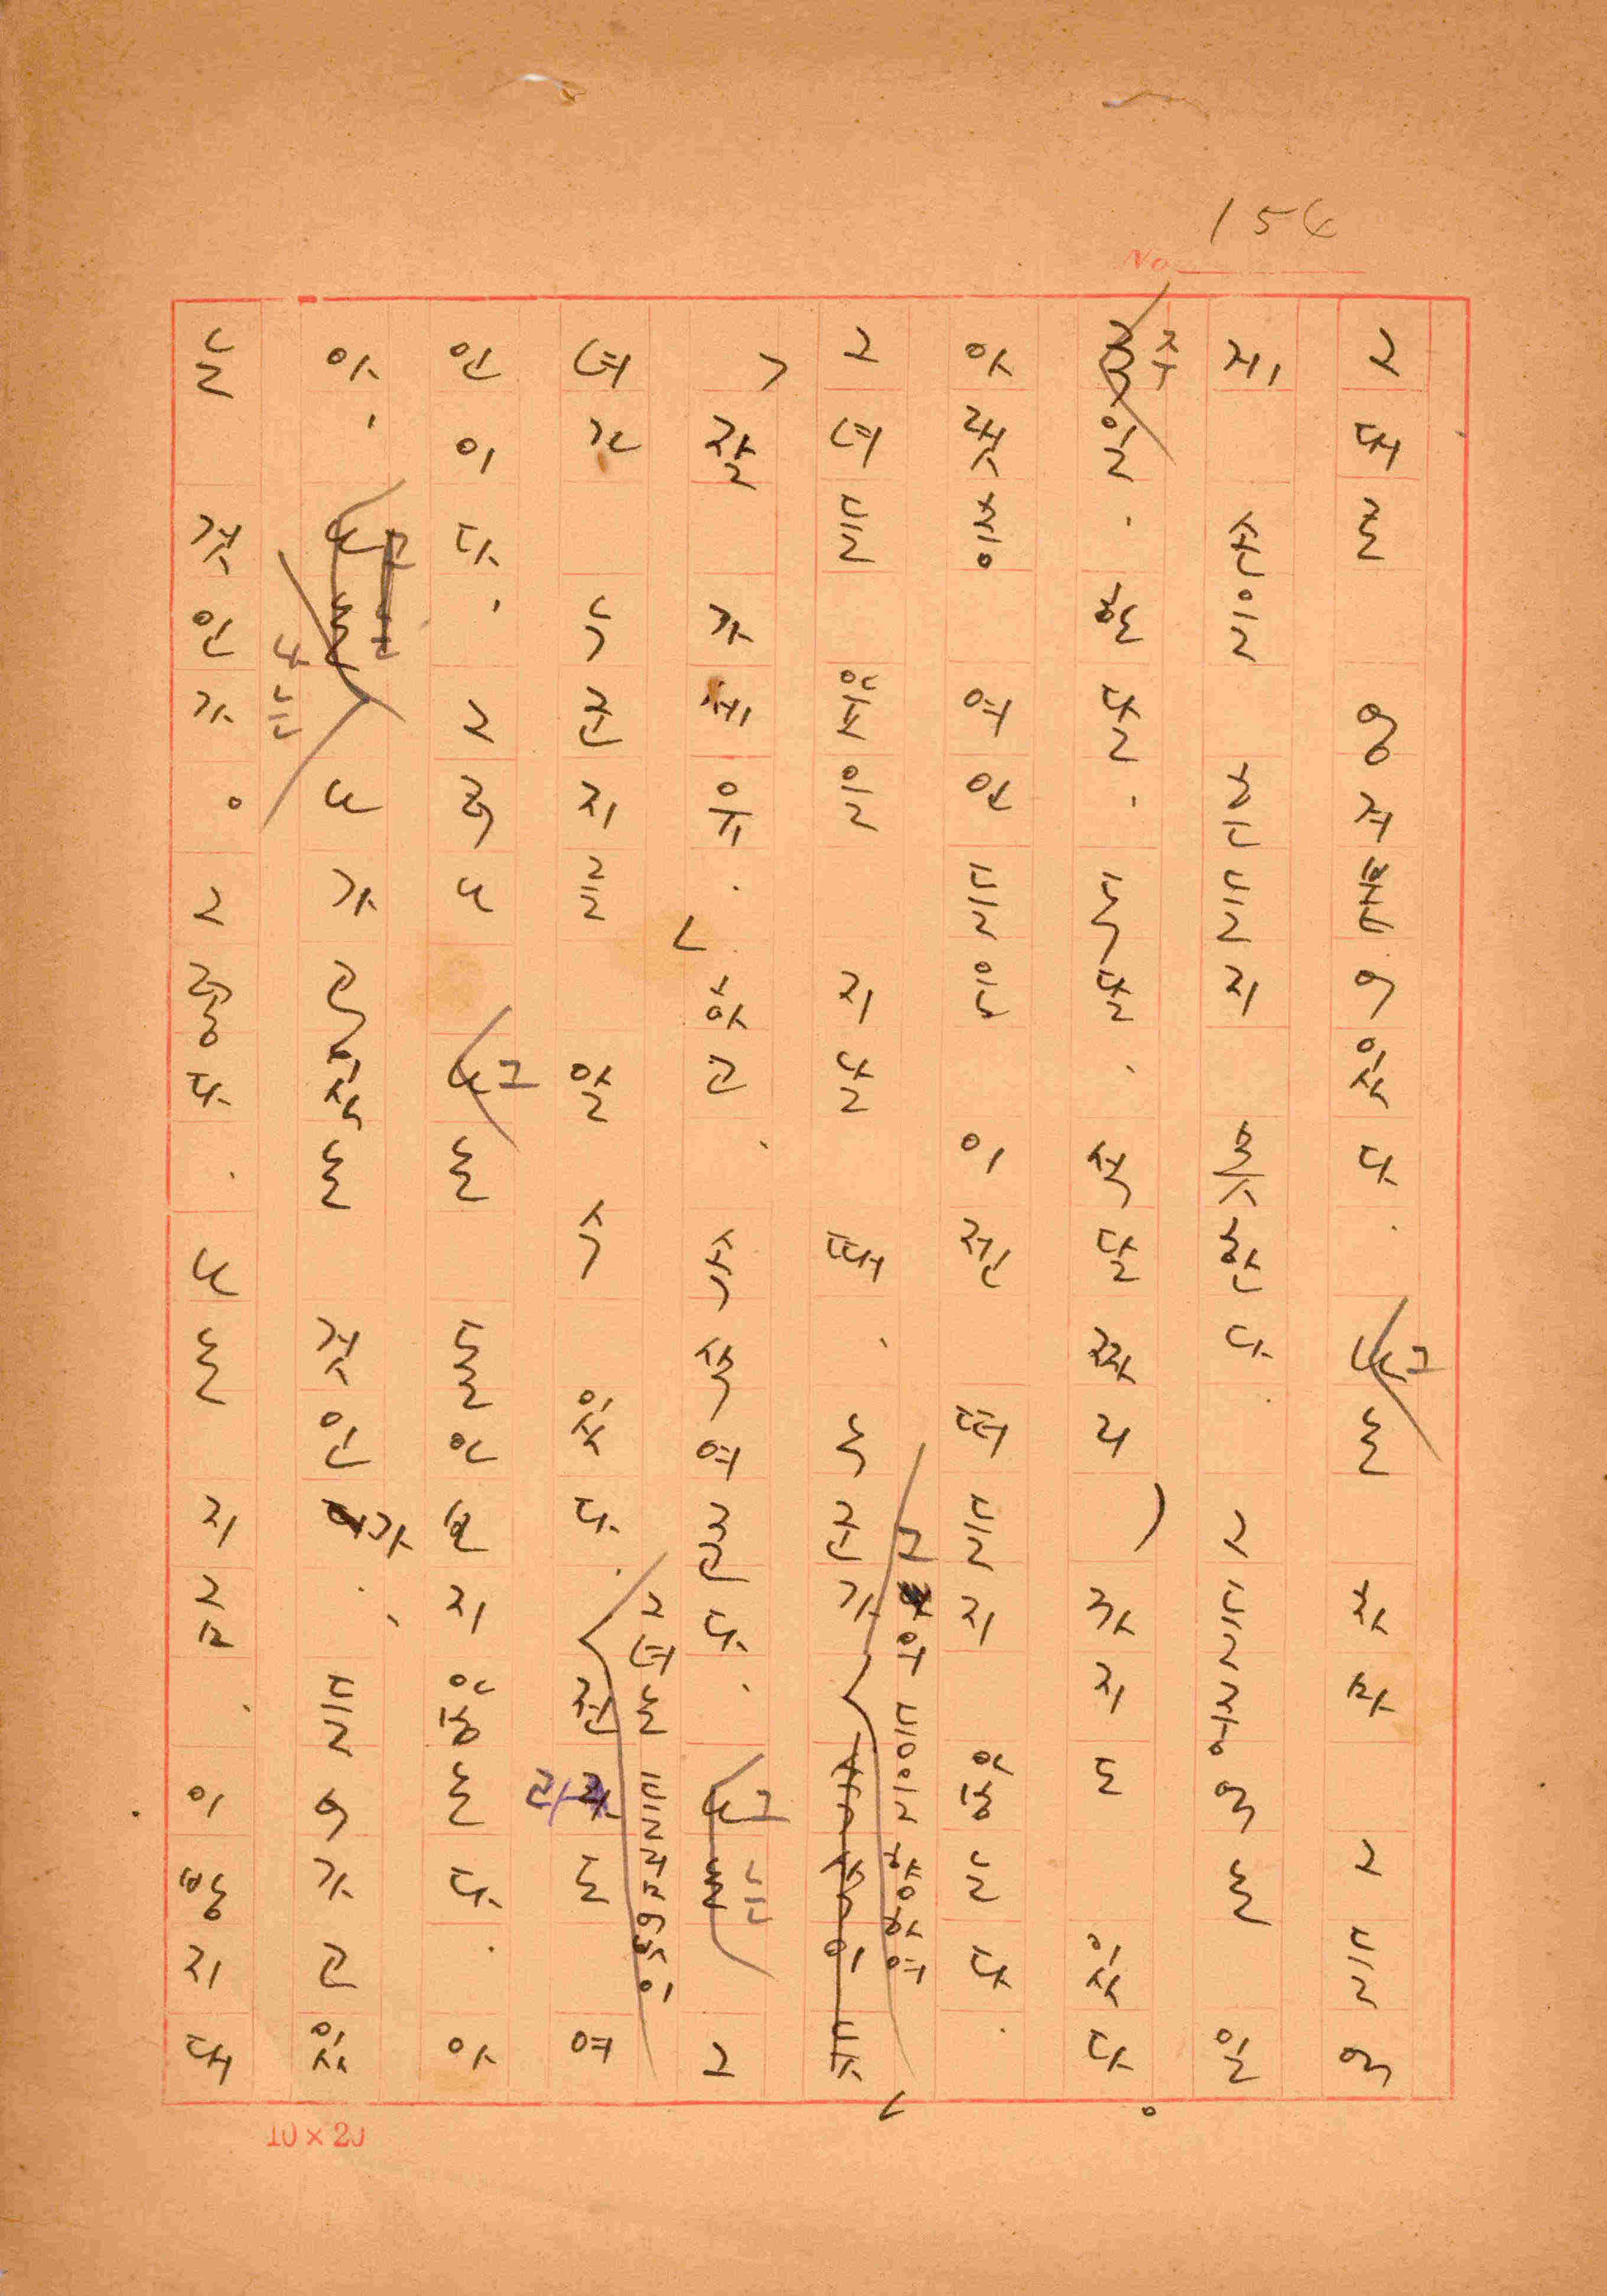 154
No
그대로 엉겨붙어있다. 나그는 차마 그들에
게 손을 흔들지 못한다. 그들중에는 일
주일. 한달. 두달. 석달짜리) 까지도 있다.
아랫층 여인들은 이젠 떠들지 않는다.
그녀들 앞을 지날 때, 누군가
「잘 가세유.」 하고, 속삭여준다. 나그는 그
녀가 누군지를 알 수 있다. 전라도 여
그녀는
인이다. 그러나 나그는 돌아보지 않는다. 아
아, 나는 나가고 있는 것인가. 들어가고 있
는 것인가. 그렇다. 나는 지금, 이 방지대
10 × 20